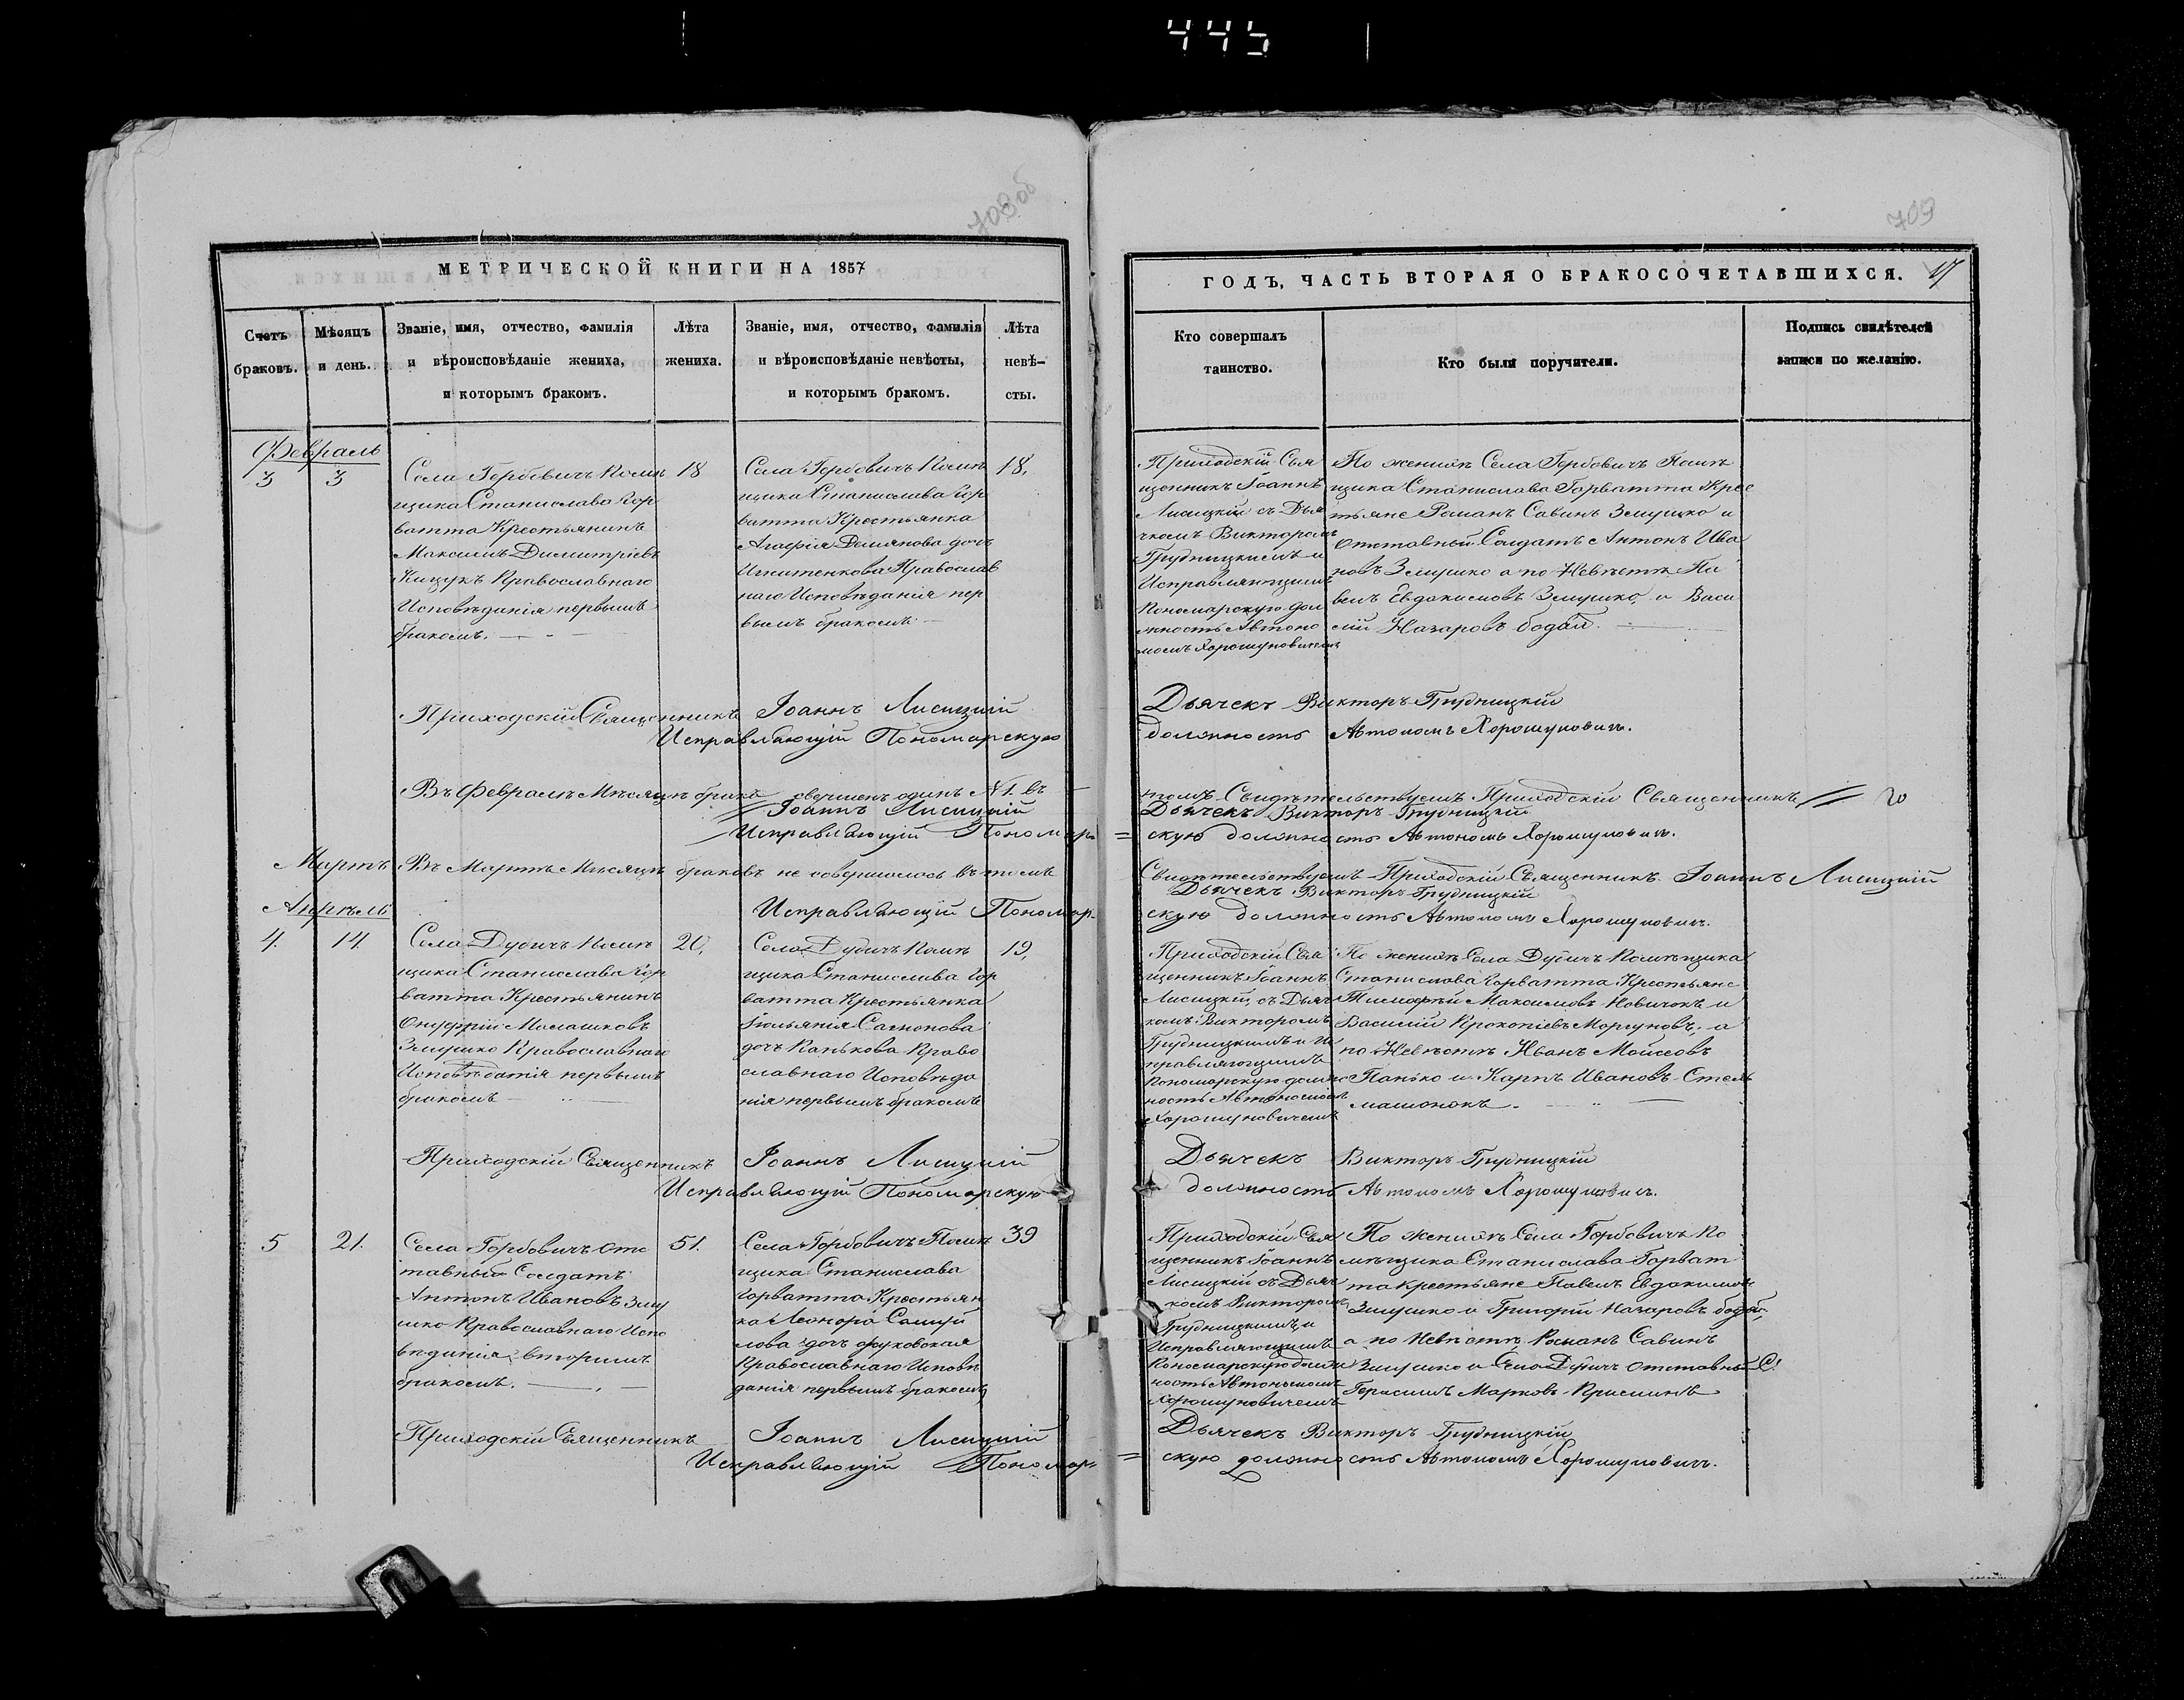 445
708об
709
МЕТРИЧЕСКОЙ КНИГИ НА 1857
ГОДЪ, ЧАСТЬ ВТОРАЯ О БРАКОСОЧЕТАВШИХСЯ.
17
Счетъ
браковъ.
Мѣсяцъ
и день.
Званіе, имя, отчество, фамилія
и вѣроисповѣданіе жениха,
и которымъ бракомъ.
Лѣта
жениха.
Званіе, имя, отчество, фамилія
и вѣроисповѣданіе невѣсты,
и которымъ бракомъ.
Лѣта
невѣ-
сты.
Кто совершалъ
таинство.
Кто были поручители.
Подпись свидѣтелей
записи по желанію.
Февраль
3
3
Села Горбовичъ Помѣ
щика Станислава Гор
ватта Крестьянинъ
Максимъ Димитріевъ
Кищукъ Православнаго
Исповѣданія первымъ
бракомъ.
18
Села Горбовичъ Помѣ
щика Станислава Гор
ватта Крестьянка
Агафія Демянова дочь
Игнатенкова Православ
наго Исповѣданія пер
вымъ бракомъ
18,
Приходскій Свя
щенникъ Іоаннъ
Лисицкій съ Дья
чкомъ Викторомъ
Грудницкимъ и
Исправляющимъ
Пономарскую дол
жность Автоно
момъ Хорошуновичемъ
По женихѣ Села Горбовичъ Помѣ
щика Станислава Горватта Крес
тьяне Романъ Савинъ Змушко и
отставный Солдатъ Антонъ Ива
новъ Змушко а по Невѣстѣ Па
велъ Евдакимовъ Змушко, и Васи
лій Назаровъ бодай.
Приходскій Священникъ Іоаннъ Лисицкій
Исправляющій Пономарскую
Дьячекъ Викторъ Грудницкій
должность Автономъ Хорошуновичъ.
Въ Февралѣ Мѣсяцѣ бракъ свершенъ одинъ №1. въ
Іоаннъ Лисицкій
Исправляющій Пономар=
томъ Свидѣтельствуемъ Приходскій Священникъ
Дьячекъ Викторъ Грудницкій
=скую должность Автономъ Хорошуновичъ.
Мартъ
Въ Мартѣ Мѣсяцѣ браковъ не совершалось въ томъ
Свидѣтельствуемъ Приходскій Священникъ Іоаннъ Лисицкій
Дьячекъ Викторъ Грудницкій
Апрѣль
Исправляющій Пономар-
скую должность Автономъ Хорошуновичъ.
4.
14.
Села Дудичъ Помѣ
щика Станислава Гор
ватта Крестьянинъ
Онуфрій Малашковъ
Змушко Православнаго
Исповѣданія первымъ
бракомъ
20,
Села Дудичъ Помѣ
щика Станислава Гор
ватта Крестьянка
Іюльянія Самонова
дочь Панькова Право
славнаго Исповѣда
нія первымъ бракомъ
19,
Приходскій Свя
щенникъ Іоаннъ
Лисицкій, съ Дьяч
комъ Викторомъ
Грудницкимъ и Ис
правляющимъ
Пономарскую долж
ность Автономомъ
Хорошуновичемъ
По женихѣ Села Дудичъ Помѣщика
Станислава Горватта Крестьяне
Тимофѣй Максимовъ Новичокъ и
Василій Прокопіевъ Моргуновъ; а
по Невѣстѣ Иванъ Моисеовъ
Панько и Карпъ Ивановъ Стель
машонокъ.
Приходскій Священникъ Іоаннъ Лисицкій
Исправляющій Пономарскую
Дьячекъ Викторъ Грудницкій
должность Автономъ Хорошуновичъ.
5
21.
Села Горбовичъ отс
тавный Солдатъ
Антонъ Ивановъ Зму
шко Православнаго Испо
вѣданія, вторымъ
бракомъ.
51.
Села Горбовичъ Помѣ
щика Станислава
Горватта Крестьян
ка Леонора Самуй
лова дочь
Православнаго Исповѣ
данія первымъ бракомъ
39
Приходскій Свя
щенникъ Іоаннъ
Лисицкій съ Дьяч
комъ Викторомъ
Грудницкимъ, и
Исправляющимъ
Пономарскую долж
ность Автономомъ
Хорошуновичемъ
По женихѣ Села Горбовичъ По
мѣщика Станислава Горват
та крестьяне Павелъ Евдакимовъ
Змушко и Григорій Назаровъ бодай,
а по Невѣстѣ Романъ Савинъ
Змушко и Села Дудичъ отставный С.
Герасимъ Марковъ
Приходскій Священникъ Іоаннъ Лисицкій
Исправляющій Пономар=
Дьячекъ Викторъ Грудницкій
=скую должность Автономъ Хорошуновичъ.